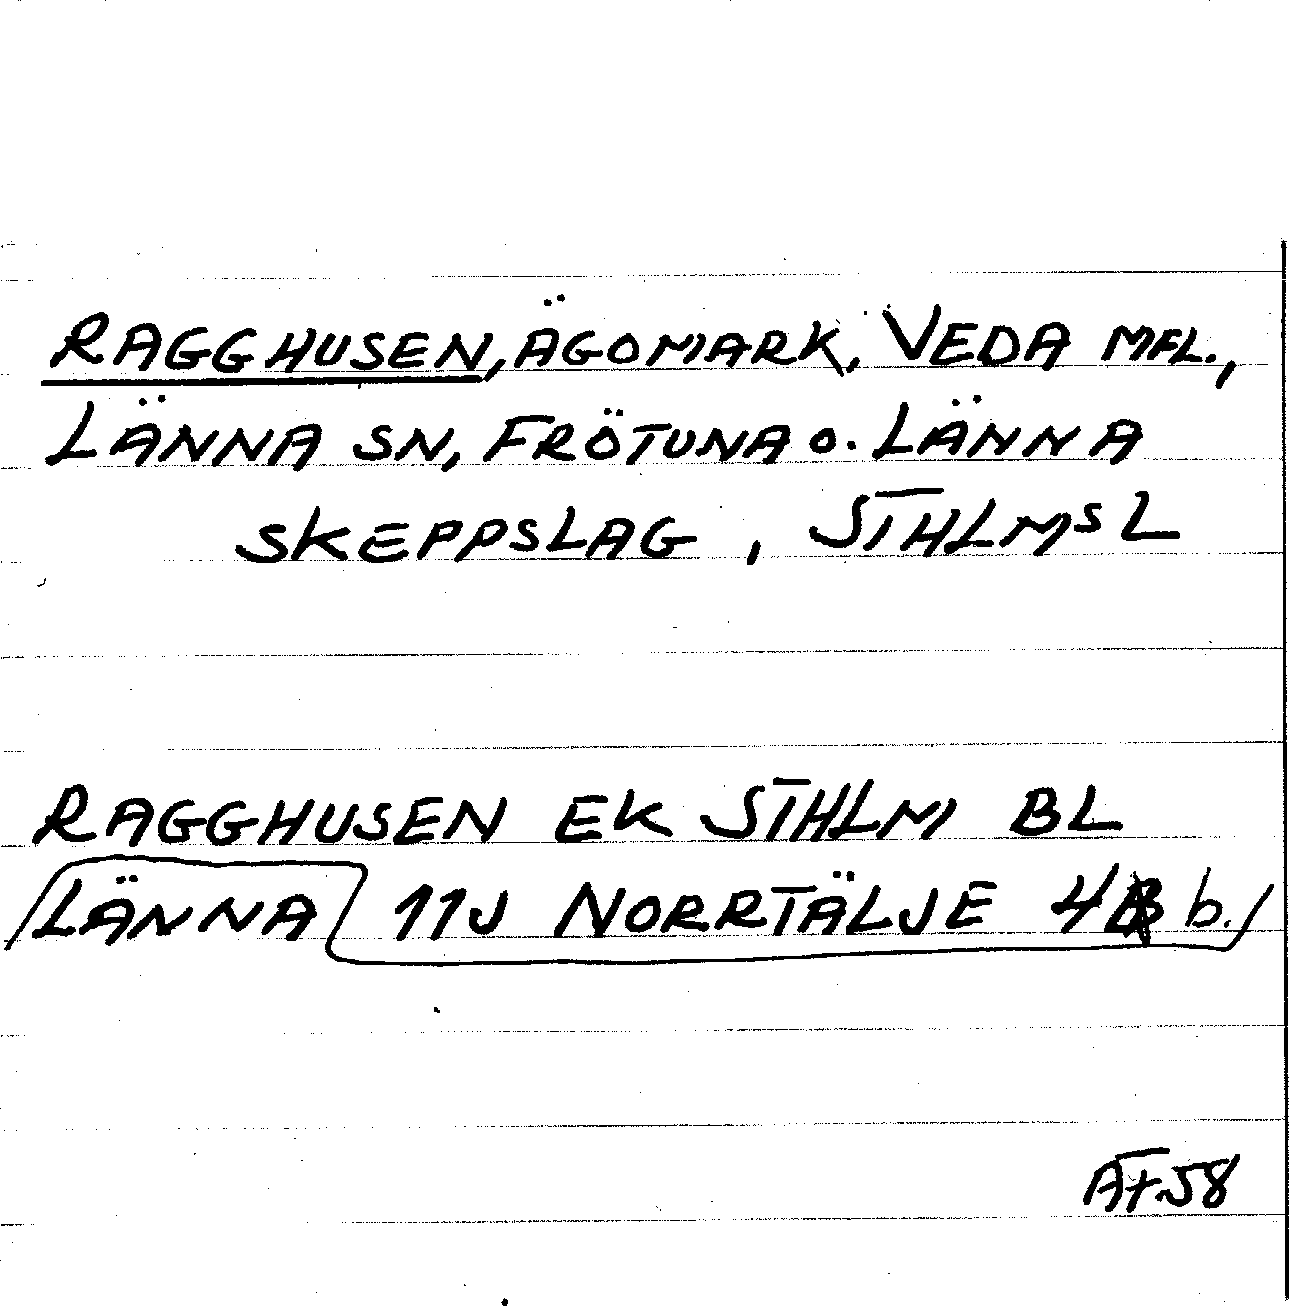 RAGGHUSEN, ÄGOMARK, VEDA MFL.,
LÄNNA SN, FRÖTUNA O. LÄNNA
SKEPPSLAG, STHLMS L
RAGGHUSEN EK STHLM BL
LÄNNA 11J NORRTÄLJE 4 b.